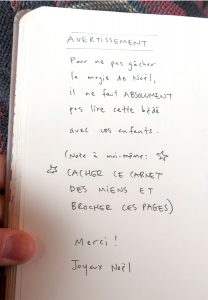 AVERTISSEMENT
Pour ne pas gâcher
la magie de Noël,
il ne faut ABSOLUMENT
pas lire cette bédé
avec vos enfants.
(Note à moi-même:
CACHER CE CARNET
DES MIENS ET
BROCHER CES PAGES)
Merci!
Joyeux Noël